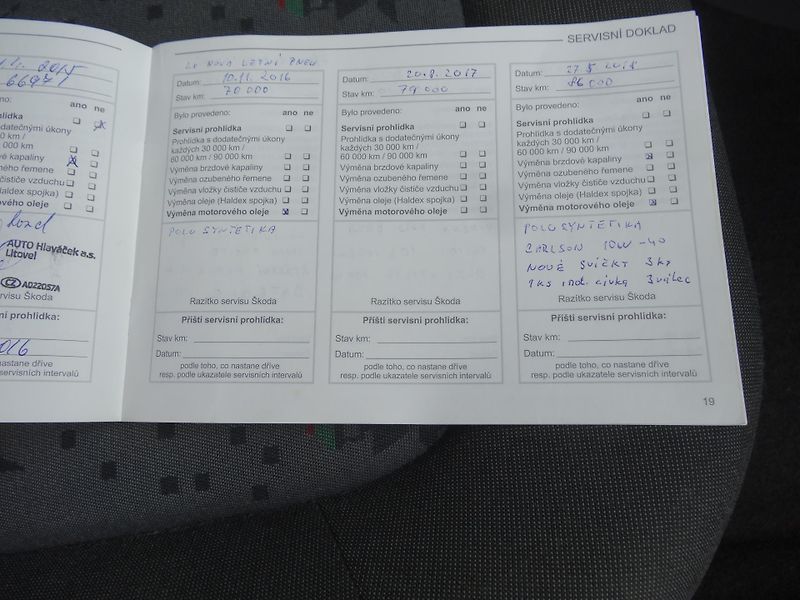 SERVISNÍ DOKLAD
66971
ano ne
dodatečnými úkony
km /
km
kapaliny
ozubeného řemene
čističe vzduchu
(Haldex spojka)
motorového oleje
AUTO Hlaváček a.s.
Litovel
CZ AD22057A
servisu Škoda
servisní prohlídka:
2016
nastane dříve
servisních intervalů
NOVÁ LETNÍ PNEU
Datum: 10.11. 2016
Stav km: 70 000
Bylo provedeno: ano ne
Servisní prohlídka
Prohlídka s dodatečnými úkony
každých 30 000 km /
60 000 km / 90 000 km
Výměna brzdové kapaliny
Výměna ozubeného řemene
Výměna vložky čističe vzduchu
Výměna oleje (Haldex spojka)
Výměna motorového oleje x
POLOSYNTETIKA
Razítko servisu Škoda
Příští servisní prohlídka:
Stav km:
Datum:
podle toho, co nastane dříve
resp. podle ukazatele servisních intervalů
Datum: 20.8. 2017
Stav km: 79 000
Bylo provedeno: ano ne
Servisní prohlídka
Prohlídka s dodatečnými úkony
každých 30 000 km /
60 000 km / 90 000 km
Výměna brzdové kapaliny
Výměna ozubeného řemene
Výměna vložky čističe vzduchu
Výměna oleje (Haldex spojka)
Výměna motorového oleje
Razítko servisu Škoda
Příští servisní prohlídka:
Stav km:
Datum:
podle toho, co nastane dříve
resp. podle ukazatele servisních intervalů
Datum: 27 5 2018
Stav km: 86 000
Bylo provedeno: ano ne
Servisní prohlídka
Prohlídka s dodatečnými úkony
každých 30 000 km /
60 000 km / 90 000 km
Výměna brzdové kapaliny x
Výměna ozubeného řemene
Výměna vložky čističe vzduchu
Výměna oleje (Haldex spojka)
Výměna motorového oleje x
POLOSYNTETIKA
CARLSON 10W-40
NOVÉ SVÍČKY 3ks
1ks ind. cívka 3 válec
Razítko servisu Škoda
Příští servisní prohlídka:
Stav km:
Datum:
podle toho, co nastane dříve
resp. podle ukazatele servisních intervalů
19